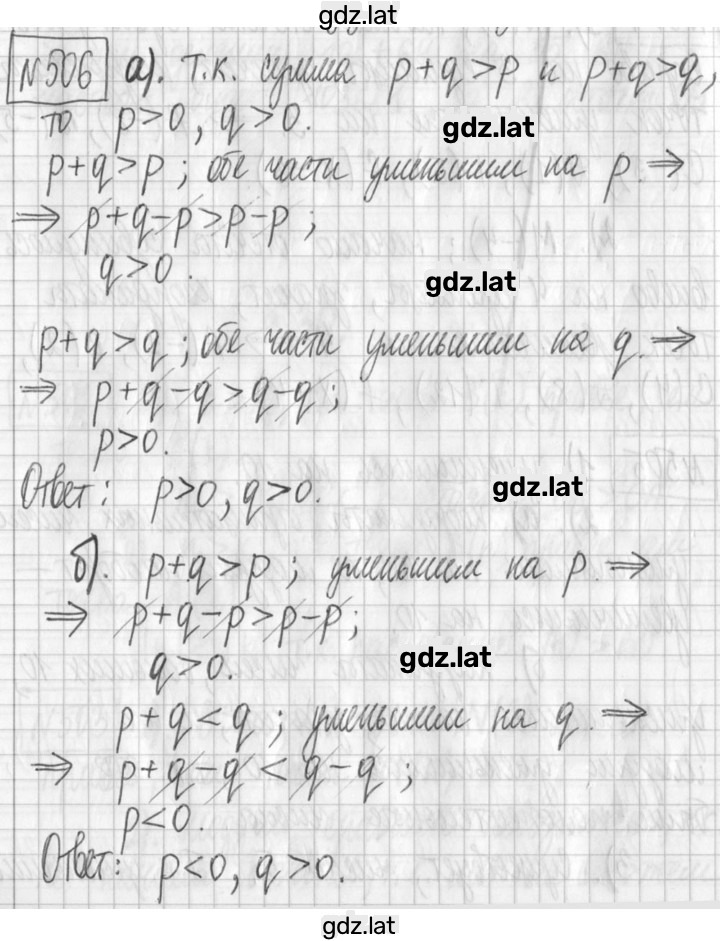 gdz.lat
№506 а). Т.к. сумма p+q>p и p+q>q,
то p>0, q>0.
gdz.lat
p+q>p; обе части уменьшим на p. ⇒
⇒ p+q-p>p-p;
q>0.
gdz.lat
p+q>q; обе части уменьшим на q. ⇒
⇒ p+q-q>q-q;
p>0.
Ответ: p>0, q>0.
gdz.lat
б). p+q>p; уменьшим на p. ⇒
⇒ p+q-p>p-p;
q>0.
gdz.lat
p+q<q; уменьшим на q. ⇒
⇒ p+q-q<q-q;
p<0.
Ответ: p<0, q>0.
gdz.lat